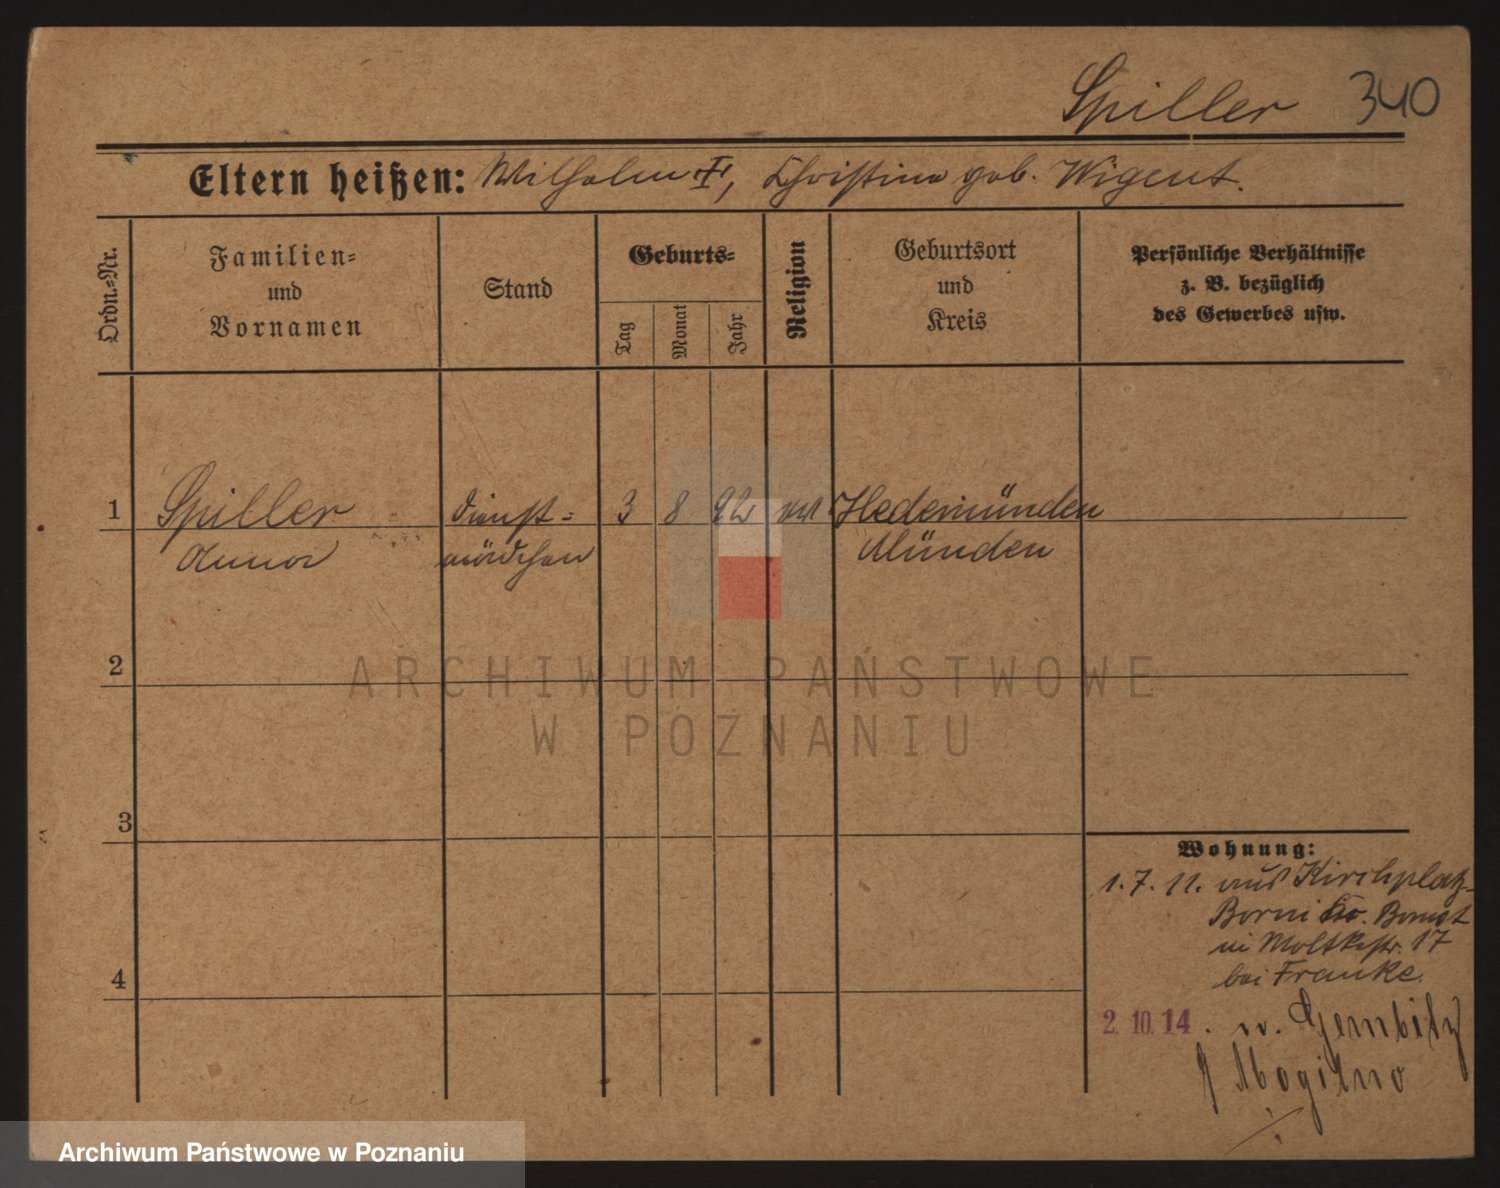 Spiller 340
Eltern heißen: Wilhelm †, Christine geb. Wigent.
Ordn.-Nr.
Familien-
und
Vornamen
Stand
Geburts-
Tag
Monat
Jahr
Religion
Geburtsort
und
Kreis
Persönliche Verhältnisse
z. B. bezüglich
des Gewerbes usw.
1 Spiller Dienst- 3 8 92 Hedemünden
Anna mädchen Münden
2
ARCHIWUM PAŃSTWOWE
W POZNANIU
3
Wohnung:
1.7.11. aus Kirchplatz-
Borui Kr. Bomst
in Moltkestr. 17
bei Franke.
4
2. 10. 14. n. Gembitz
Mogilno
Archiwum Państwowe w Poznaniu